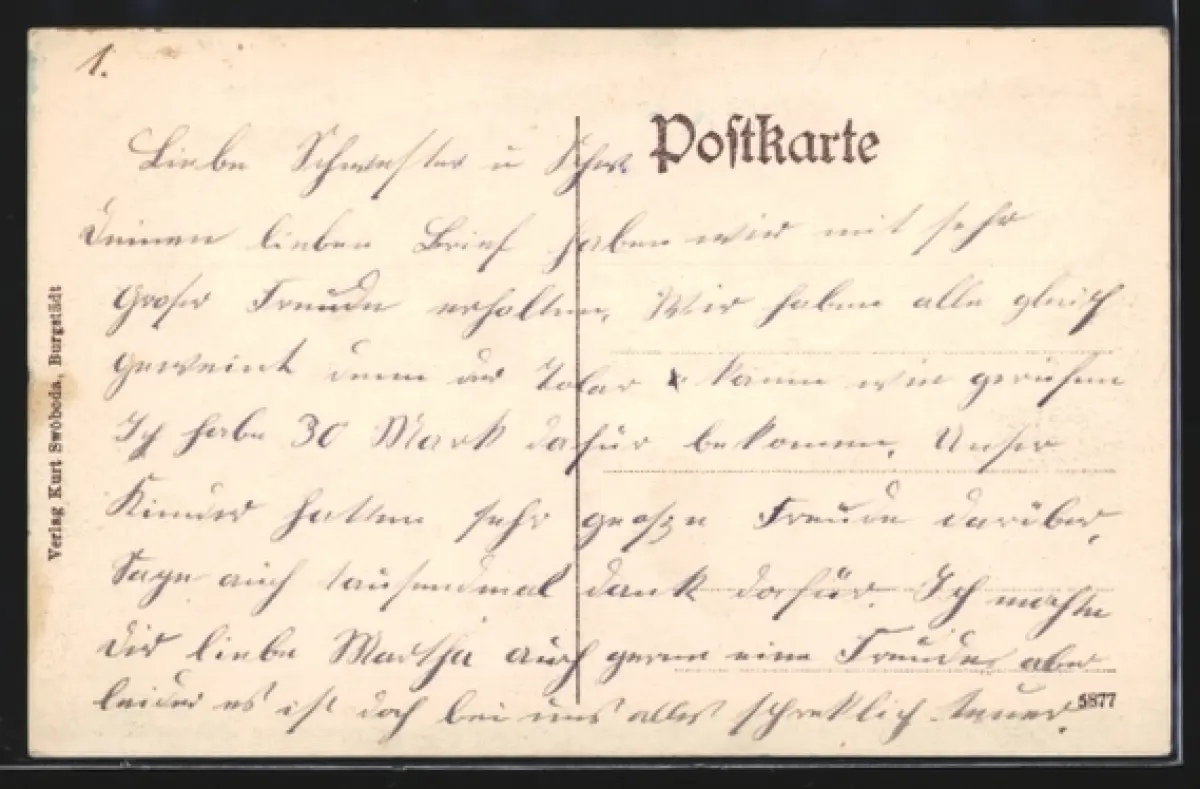 1.
Postkarte
Liebe Schwester u Schw.
Deinen lieben Brief haben wir mit sehr
Groser Freude erhalten, Wir haben alle gleich
geweint denn der Tolar kamm wie gerufen
Ich habe 30 Mark dafür bekommen, Unser
Kinder hatten sehr große Freude darüber,
Sage auch tausendmal dank dafür. Ich mochte
Dir liebe Martha auch gerne eine Freude aber
leider es ist doch bei uns alles schreklich teuer.
5877
Verlag Kurt Swoboda, Burgstädt